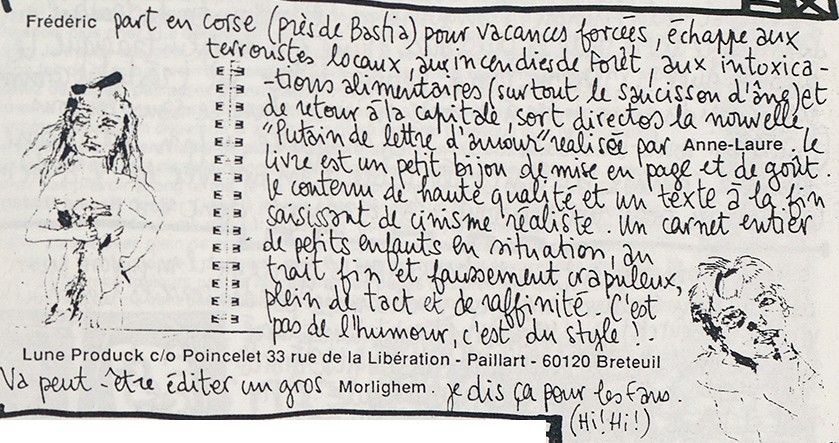 Frédéric part en corse (près de Bastia) pour vacances forcées, échappe aux
terroristes locaux, aux incendies de Forêt, aux intoxica-
-tions alimentaires (surtout le saucisson d'âne) et
de retour à la capitale, sort directos la nouvelle,
"Putain de lettre d'amour" realisée par Anne-Laure. Le
livre est un petit bijou de mise en page et de goût.
le contenu de haute qualité et un texte à la fin
saisissant de cinisme réaliste. Un carnet entier
de petits enfants en situation, au
trait fin et faussement crapuleux,
plein de tact et de raffinité. C'est
pas de l'humour, c'est du style !
Lune Produck c/o Poincelet 33 rue de la Libération - Paillart - 60120 Breteuil
Va peut-être éditer un gros Morlighem. je dis ça pour les fans.
(Hi! Hi!)